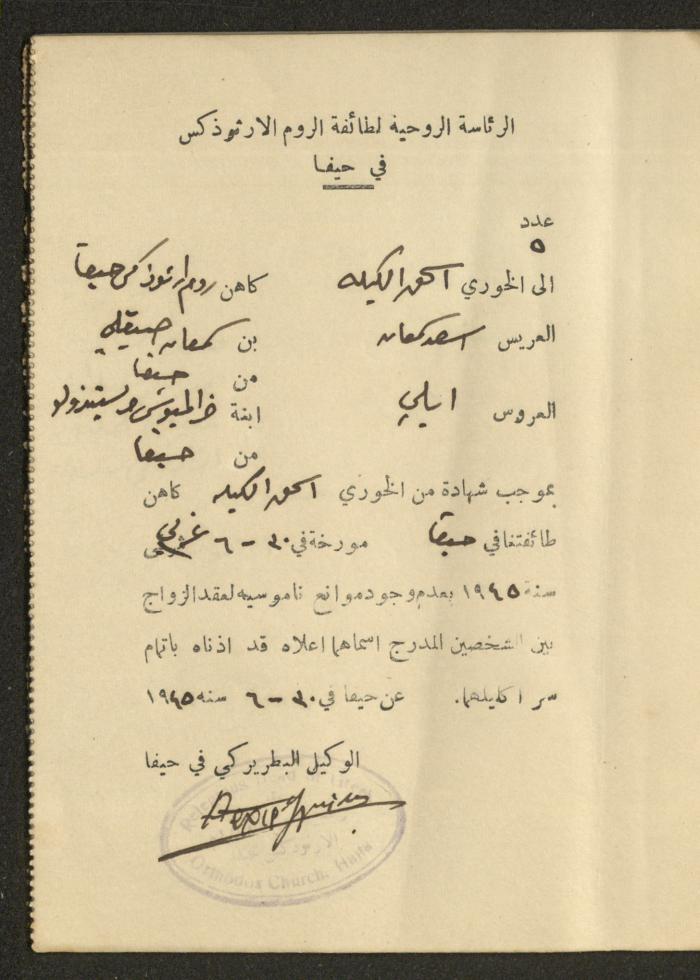 الرئاسة الروحية لطائفة الروم الارثوذكس
في حيفا
عدد
٥
الى الخوري اسحق الكيله كاهن روم ارثوذكس حيفا
العريس اسعد كمعان بن كمعان صيقلي
من حيفا
العروس ايلي ابنة
من حيفا
بموجب شهادة من الخوري اسحق الكيله كاهن
طائفتنا في حيفا مورخة في ٣٠ - ٦ غربي
سنة ١٩٤٥ بعدم وجود موانع ناموسيه لعقد الزواج
بين الشخصين المدرج اسماهما اعلاه قد اذناه باتمام
سر اكليلهما. عن حيفا في ٣٠ - ٦ سنه ١٩٤٥
الوكيل البطريركي في حيفا
Orthodox Church, Haifa